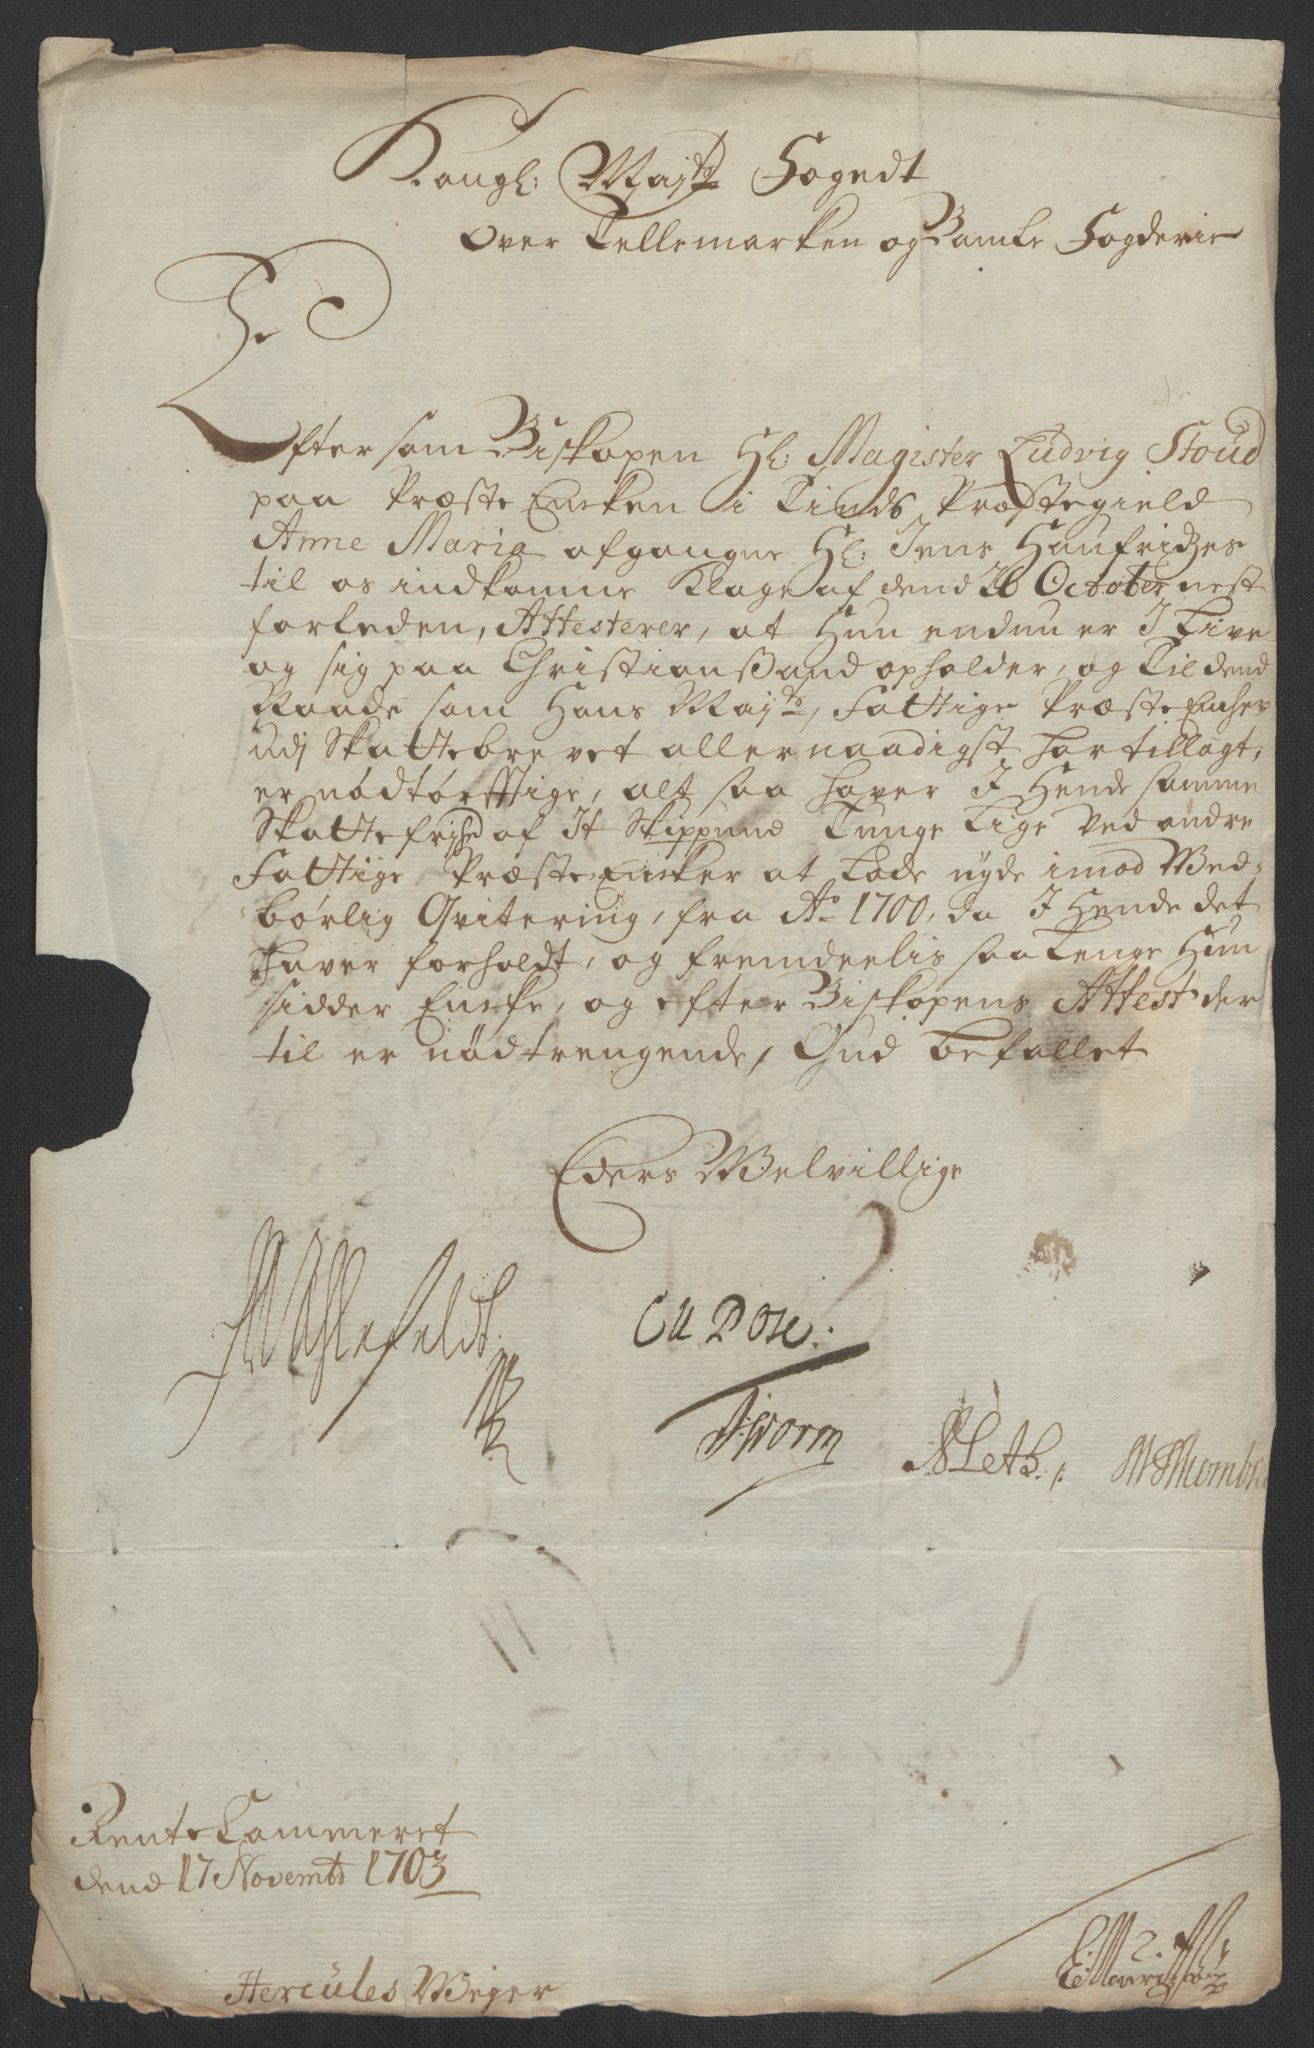 Kongl: Maj:ts Fogedt
Over Tellemarken og Bamle Fogderie
Efter som Biskopen Hl: Magister Ludvig Stoud
paa Præste Encken i Tinds Præstegield
Anne Maria afgangne Hl: Jens Hanfridzes
til os indkomne Klage af dend 26 October nest
forleden, Attesterer, at Hun endnu er I Live
og sig paa Christiansand opholder, og til dend
Naade som Hans Maj:ts fattige Præste Encker
udj Skattebrevet allernaadigst har tillagt,
er nødtørfftige, alt saa haver I Hende samme
Skatte frjhed af It Skippund Tunge lige ved andre
Fattige Præste Encker at lade nyde imod Wed-
børlig Qvitering, fra Ao 1700, da I Hende det
haver forholdt, og fremdeelis saa lenge Hun
sidder Encke, og efter Biskopens Attest der
til er nødtrengende, Gud befallet
Eders Welvillige
Ahlefeldt
CU Dose:
Worm
ALeth
Rente Cammeret
dend 17 Novembr 1703
Hercules Weyer